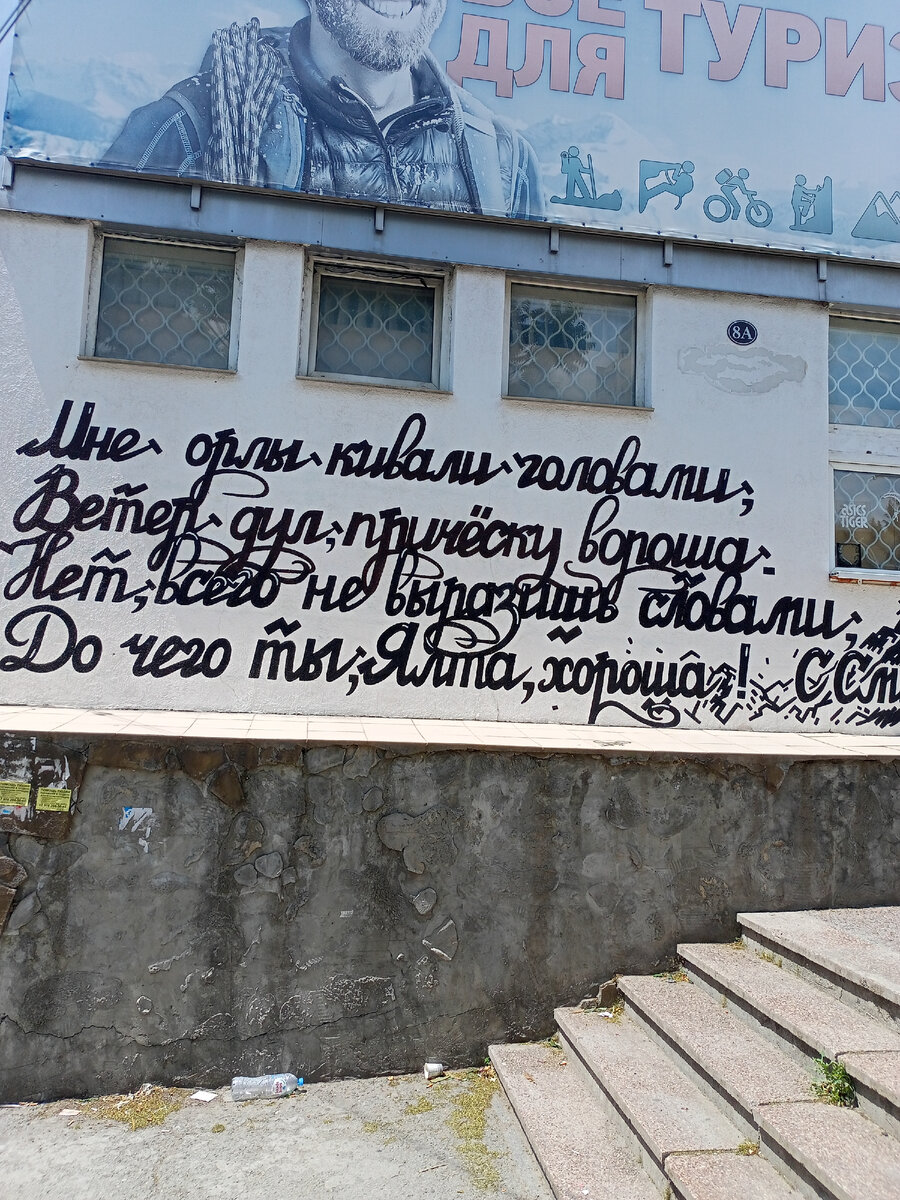 ВСЁ
ДЛЯ ТУРИЗ
8А
Мне орлы кивали головами,
Ветер дул, причёску вороша.
Нет, всего не выразишь словами,
До чего ты, Ялта, хороша! С См
ASICS
TIGER